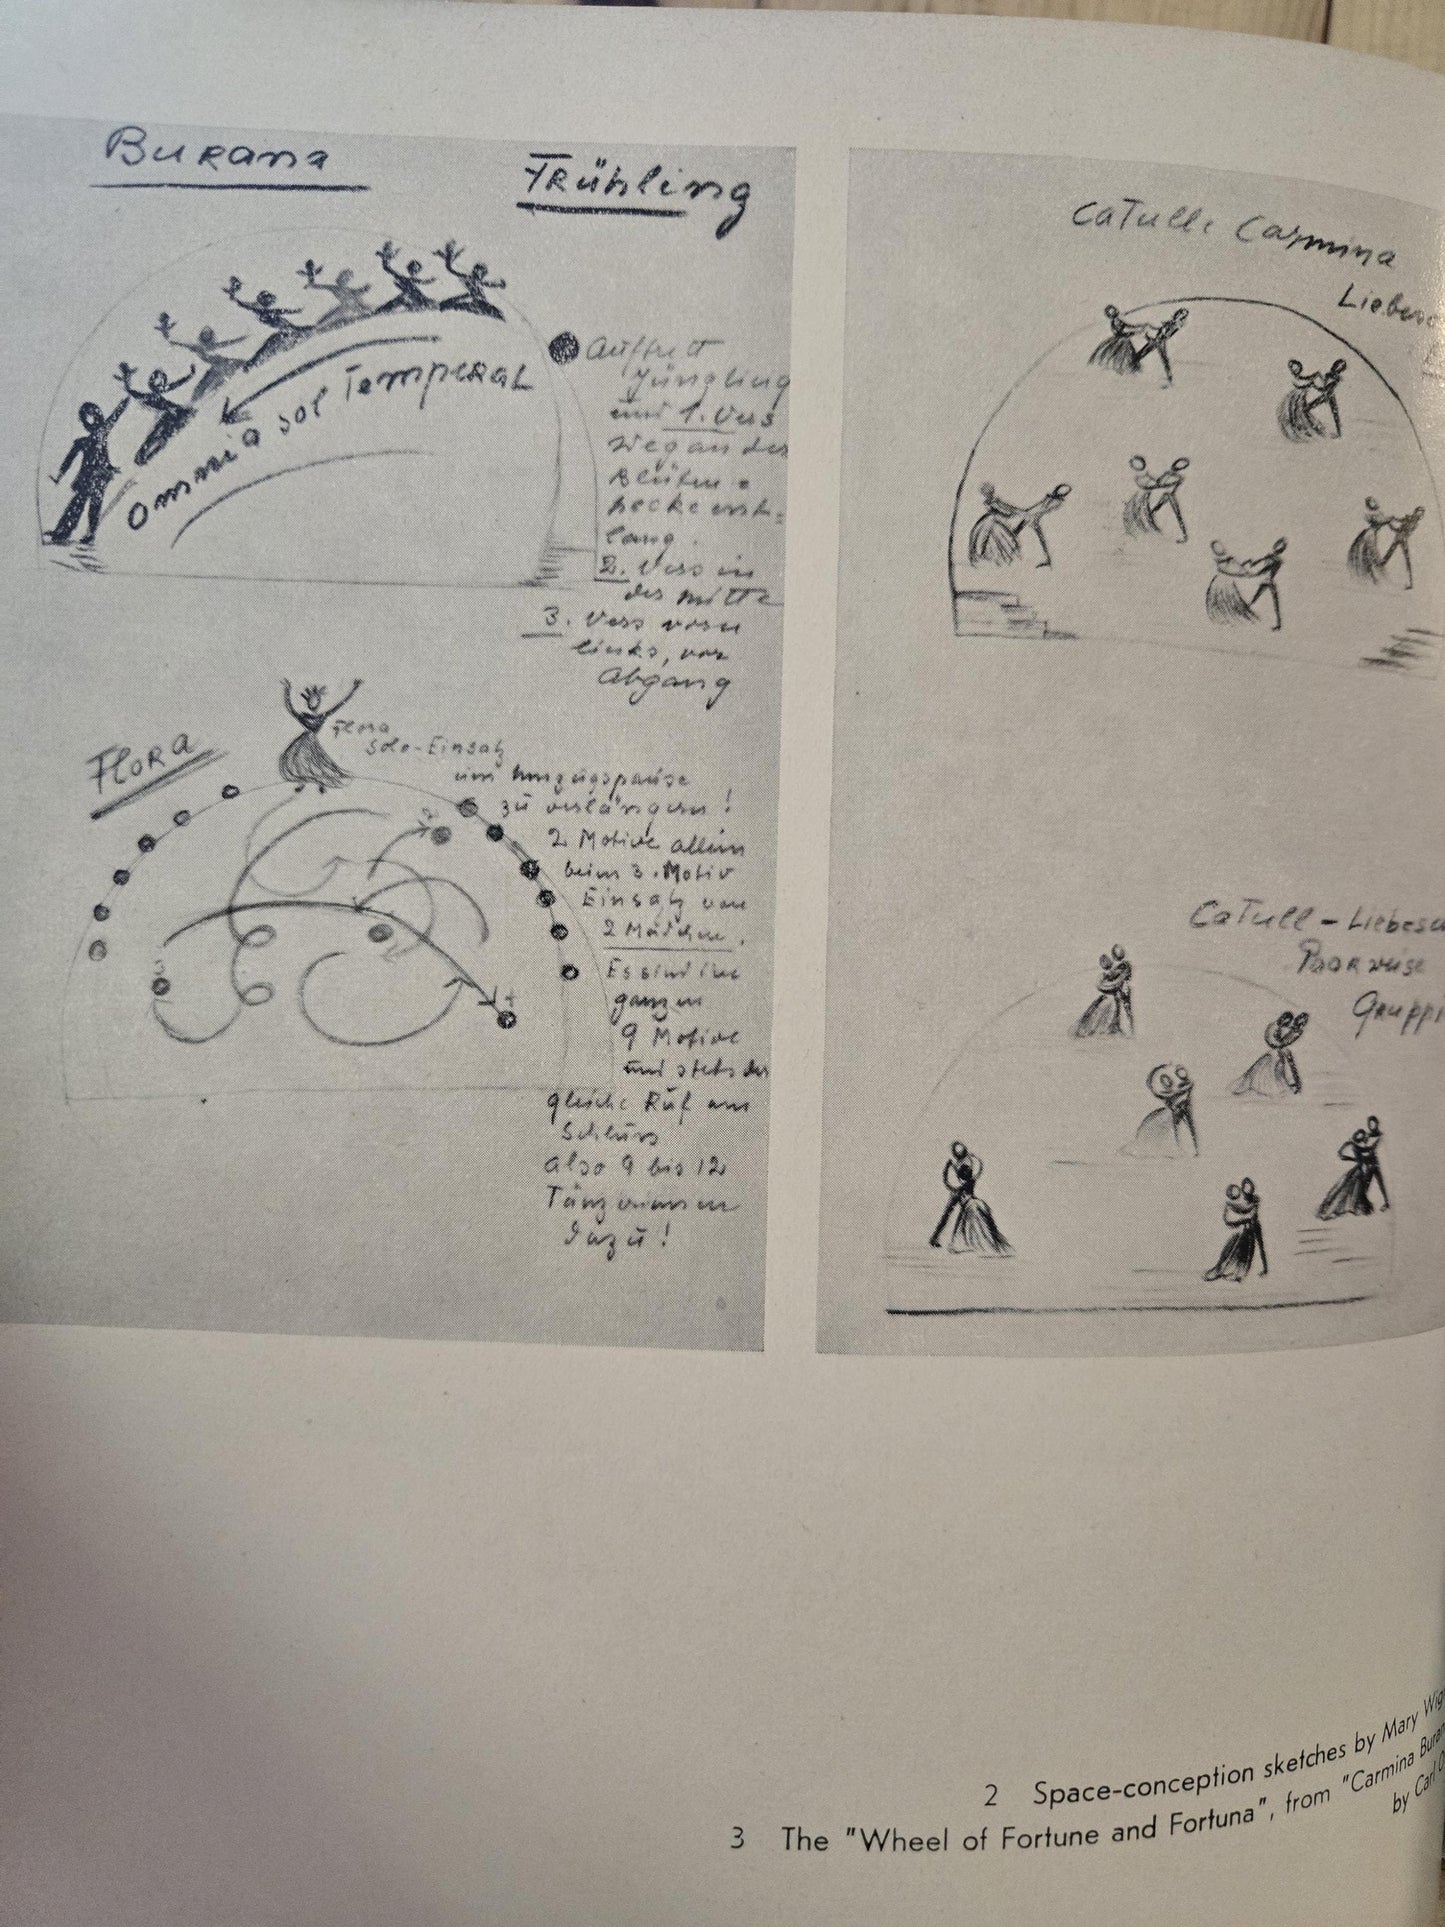 Burana
Frühling
Omnia sol temperat
Auftritt
Jüngling
und 1. Vers
Weg an der
Blüten=
hecke ent=
lang.
2. Vers in
der Mitte
3. Vers vorn
links, vor
Abgang
Flora
Flora
Solo-Einsatz
um Umzugspause
zu verlängern!
2 Motive allein
beim 3. Motiv
Einsatz von
2 Mädchen.
Es sind im
ganzen
9 Motive
und stets der
gleiche Ruf am
Schluss
also 9 bis 12
Tänzerinnen
dazu!
Catulli Carmina
Catull -
Paarweise
2 Space-conception sketches by Mary
3 The "Wheel of Fortune and Fortuna", from "Carmina
by Carl